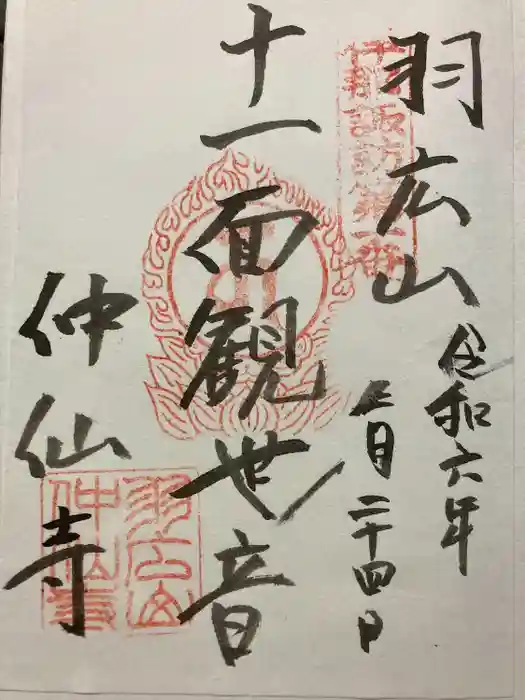 羽広山
令和六年
月二十四日
十一面観世音
仲仙寺
羽広山
仲仙寺